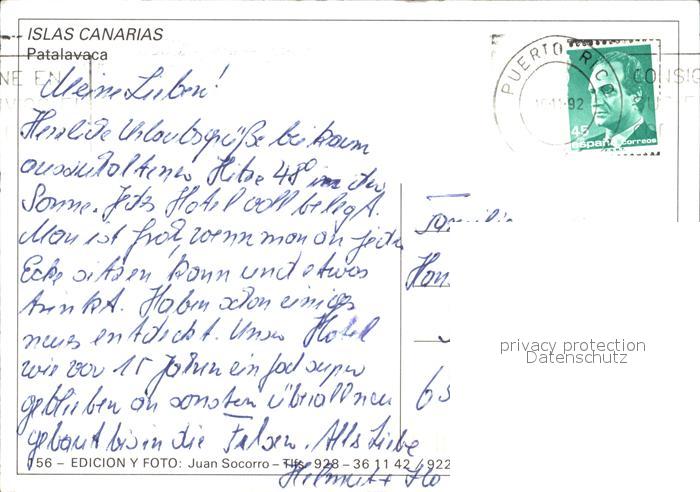 ISLAS CANARIAS
Patalavaca
NE EN
PUERTO RICO
92
CONSIG
45
españa correos
Meine Lieben!
Herzliche Urlaubsgrüße bei kaum
auszuhaltener Hitze 48° in der
Sonne. Jetzt Hotel voll belegt.
Man ist froh, wenn man an jeder
Ecke sitzen kann und etwas
trinkt. Haben schon einiges
neues entdeckt. Unser Hotel
wie vor 15 Jahren einfach super
geblieben ansonsten überall neu
gebaut bis in die Felsen. Alles Liebe
Helmut +
privacy protection
Datenschutz
156 – EDICION Y FOTO: Juan Socorro – Tlfs. 928 – 36 11 42 / 922